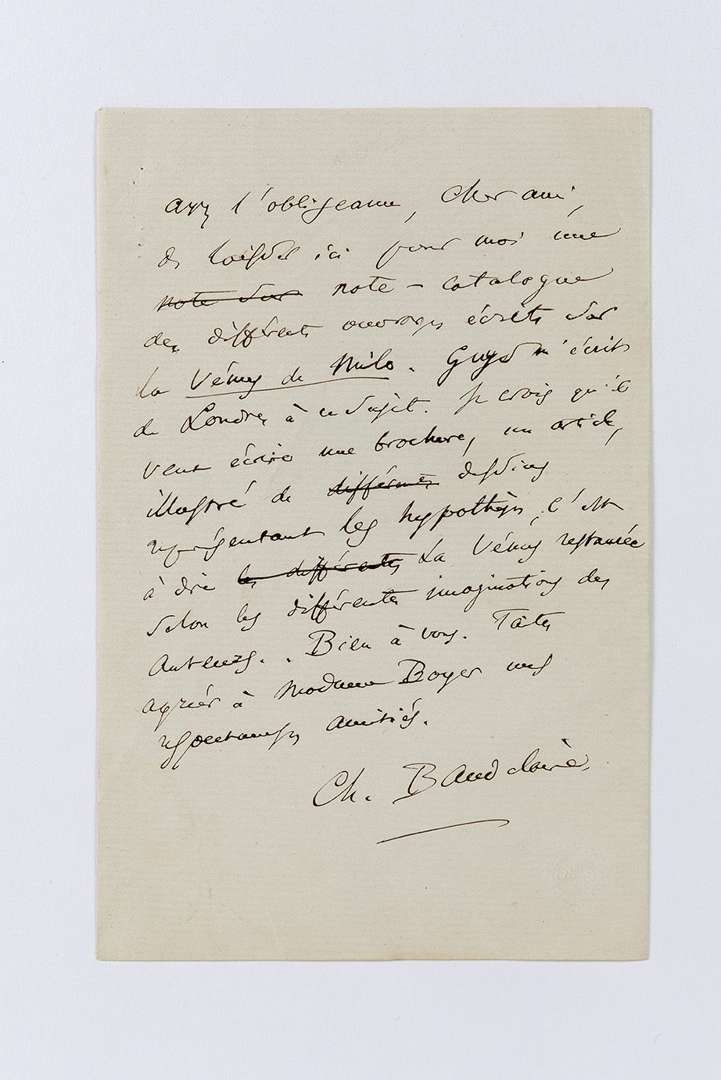 ayez l'obligeance, cher ami,
de laisser ici pour moi une
note sur note - catalogue
des différents ouvrages écrits sur
la Vénus de Milo. Guys m'écrit
de Londres à ce sujet. Je crois qu'il
veut écrire une brochure, un article,
illustré de différents dessins
représentant les hypothèses, c'est
à dire les différentes La Vénus restaurée
selon les différentes imaginations des
auteurs.. Bien à vous. Faites
agréer à Madame Boyer mes
respectueuses amitiés.
Ch. Baudelaire.